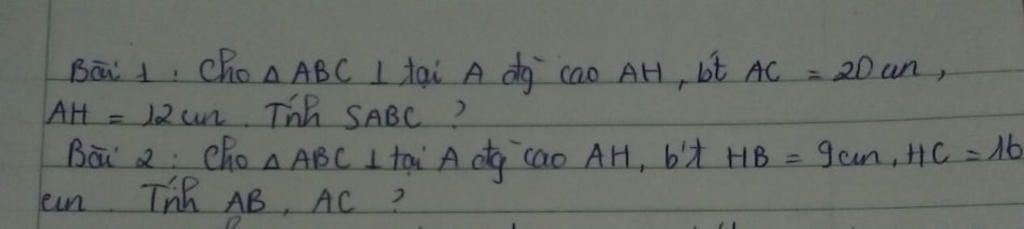 Bài 1 : Cho Δ ABC ⊥ tại A đg̀ cao AH, bít AC = 20 cm,
AH = 12 cm. Tính SABC ?
Bài 2 : Cho Δ ABC ⊥ tại A đg̀ cao AH, bít HB = 9cm, HC = 16
cm. Tính AB, AC ?